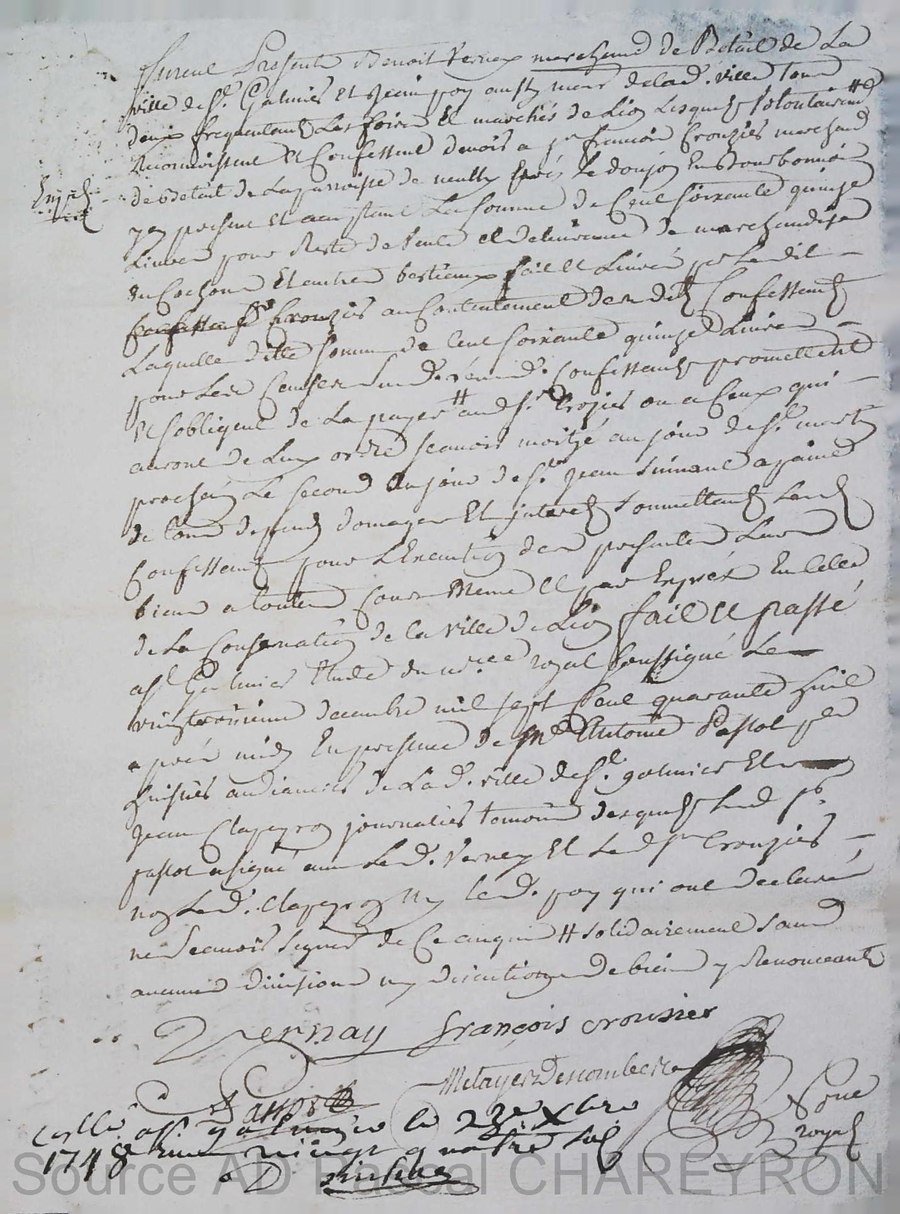 furent présents Benoit Vernex marchand de Bétail de La
ville de St. Galmier Et Jean foy aussy mar. de lad. ville tous
deux frequentans Les foires Et marchés de Lion Lesquels volontairemt
Reconnoissent Et Confessent devoir a sr. françois Crouziés marchand
de betail de La parroisse de neuilly le donjon En Bourbonnois
present Et acceptant La somme de Cent soixante quinze
Livres pour Reste de vente et delivrance de marchandise
En Cochons Et autre bestiaux fait Et Livré par Ledit
sr. Crouziés au Contentement desdits Confessants
Laquelle ditte somme de Cent soixante quinze Livres
pour Les Causes susd. Confessants promettent
Et sobligent de La payer # aud. sr. Crozies ou a Ceux qui
auront de Luy ordre scavoir moitié au jour de St.
prochain Le second au jour de St. Jean suivant a paine
de tous depends domages Et interets soumettants Lesd.
Confessants pour L'Execution des presentes Leurs
biens a toutes Cours Meme Et par Exprés En Celle
de La Conservation de la ville de Lion fait Et passé
a St. Galmier Etude du no.re royal soussigné Le
vingt decembre mil sept Cent quarante huit
aprés midy En presence de Me. Antoine Pastot
huissier audiancier de Lad. ville de St. galmier Et
Jean Clapeyron journalier temoins desquels Led.
pastot a signé avec Led. Vernex Et Led. sr. Crouziés
non Led. Clapeyron ny Led. foy qui ont declaré
ne scavoir signer de Ce enquis # solidairement sans
aucune division ny discution de biens y Renonceants
Vernay françois crousier
Metayer Descombes
Pastot
No.re
royal
Con.llé a St. galmier le 23e Xbre
1748 Reçu vingt quatre sols
Source AD Pascal CHAREYRON